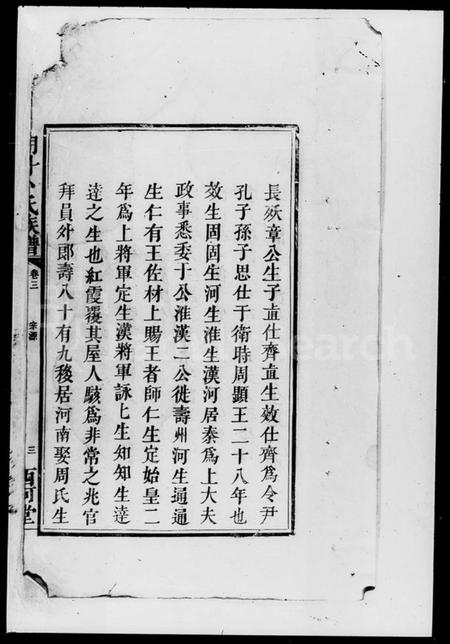 長殀章公生子直仕齊直生效仕齊爲令尹
孔子孫子思仕于衛時周顯王二十八年也
效生固固生河生淮生漢河居秦爲上大夫
政事悉委于公淮漢二公徙壽州河生通通
生仁有王佐材上賜王者師仁生定始皇二
年爲上將軍定生漢將軍詠詠生知知生逵
逵之生也紅霞覆其屋人駭爲非常之兆官
拜員外郎壽八十有九稄居河南娶周氏生
氏族譜
卷三
宗源
三
西河堂